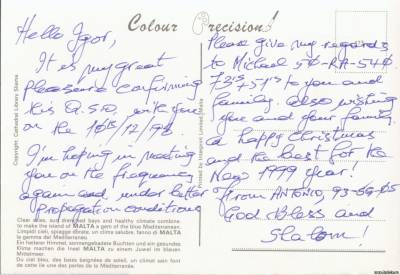 Colour Precision!
Hello Igor,
It is my great
pleasure confirming
this Q.S.O. with you
on the 16th/12/98
I'm hoping in meeting
you on the frequency
again and under better
propagation conditions
Please give my regards
to Michael 50-RA-540.
73's + 51's to you and
family. Also wishing
you and your family.
a happy Christmas
and the best for the
New 1999 year!
From ANTONIO, 93-SG-05
God Bless and
Shalom!
Copyright: Cathedral Library Sliema
Printed by Interprint Limited Malta
Clear skies, sun drenched bays and healthy climate combine
to make the island of MALTA a gem of the blue Mediterranean.
Limpidi cieli, spiagge dorate, un clima salubre, fanno di MALTA
la gemma del Mediterraneo.
Ein heiterer Himmel, sonnengebadete Buchten und ein gesundes
Klima machen die Insel MALTA zu einem Juwel im blauen
Mittelmeer.
Du ciel bleu, des baies baignées de soleil, un climat sain font
de l'île une des perles de la Méditerranée.